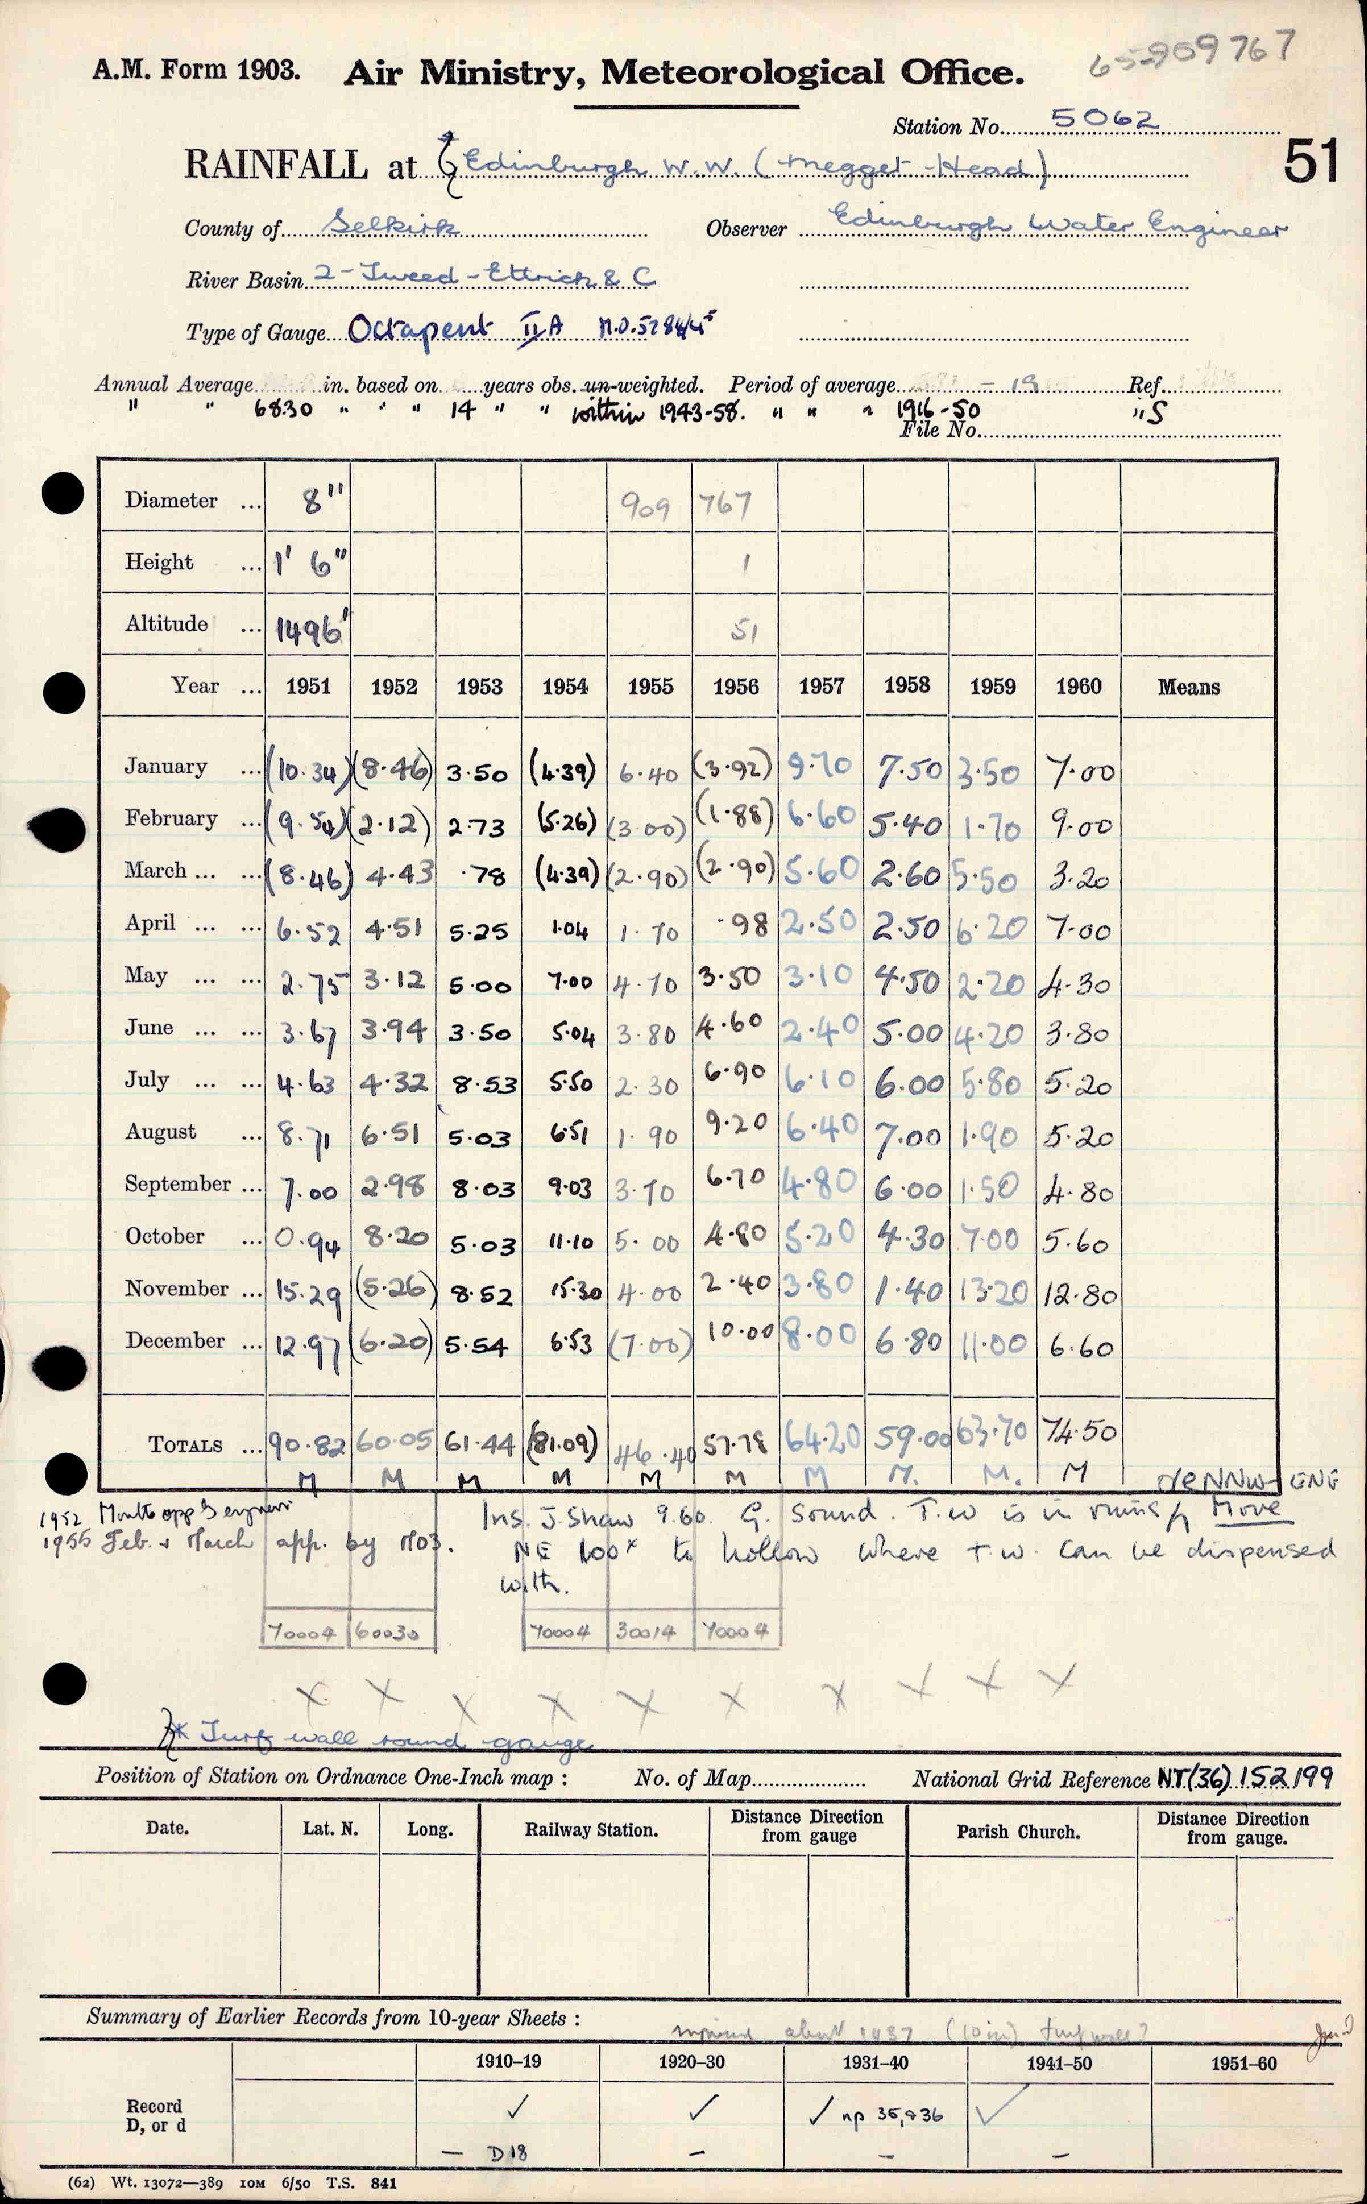 65-909767
A.M. Form 1903. Air Ministry, Meteorological Office.
Station No. 5062
51
RAINFALL at Edinburgh W.W. (Megget-Head)
County of Selkirk Observer Edinburgh Water Engineer
River Basin 2-Tweed-Ettrick & C
Type of Gauge Octapent II A
Annual Average in. based on years obs. un-weighted. Period of average - 19 Ref.
" " 68.30 " " " 14 " " within 1943-58. " " " 1916-50 " S
File No.
Diameter ... 8" 909 767
Height ... 1' 6" 1
Altitude ... 1496' 51
Year ... 1951 1952 1953 1954 1955 1956 1957 1958 1959 1960 Means
January ... (10.34) (8.46) 3.50 (4.39) 6.40 (3.92) 9.70 7.50 3.50 7.00
February ... (9.54) (2.12) 2.73 (5.26) (3.00) (1.88) 6.60 5.40 1.70 9.00
March ... ... (8.46) 4.43 .78 (4.39) (2.90) (2.90) 5.60 2.60 5.50 3.20
April ... ... 6.52 4.51 5.25 1.04 1.70 .98 2.50 2.50 6.20 7.00
May ... ... 2.75 3.12 5.00 7.00 4.70 3.50 3.10 4.50 2.20 4.30
June ... ... 3.67 3.94 3.50 5.04 3.80 4.60 2.40 5.00 4.20 3.80
July ... ... 4.63 4.32 8.53 5.50 2.30 6.90 6.10 6.00 5.80 5.20
August ... 8.71 6.51 5.03 6.51 1.90 9.20 6.40 7.00 1.90 5.20
September ... 7.00 2.98 8.03 9.03 3.70 6.70 4.80 6.00 1.50 4.80
October ... 0.94 8.20 5.03 11.10 5.00 4.80 5.20 4.30 7.00 5.60
November ... 15.29 (5.26) 8.52 15.30 4.00 2.40 3.80 1.40 13.20 12.80
December ... 12.97 (6.20) 5.54 6.53 (7.00) 10.00 8.00 6.80 11.00 6.60
TOTALS ... 90.82 60.05 61.44 (81.09) 46.40 57.78 64.20 59.00 63.70 74.50
M M M M M M M M. M. M NNW-ENE
1952 Months app by engineer Ins. J. Shaw 9.60. G. Sound. T.W is in ruins Move
1955 Feb. & March app. by M03. NE 100x to hollow where T.W. can be dispensed
with.
70004 60030 70004 30014 70004
X X X X X X X X X X
* Turf wall round gauge
Position of Station on Ordnance One-Inch map : No. of Map National Grid Reference NT(36) 152199
Date. Lat. N. Long. Railway Station. Distance Direction from gauge Parish Church. Distance Direction from gauge.
Summary of Earlier Records from 10-year Sheets :
about 1937 (10 in) turf wall?
1910-19 1920-30 1931-40 1941-50 1951-60
Record ✓ ✓ ✓ np 35,936 ✓
D, or d
- D18 - - -
(62) Wt. 13072—389 10M 6/50 T.S. 841